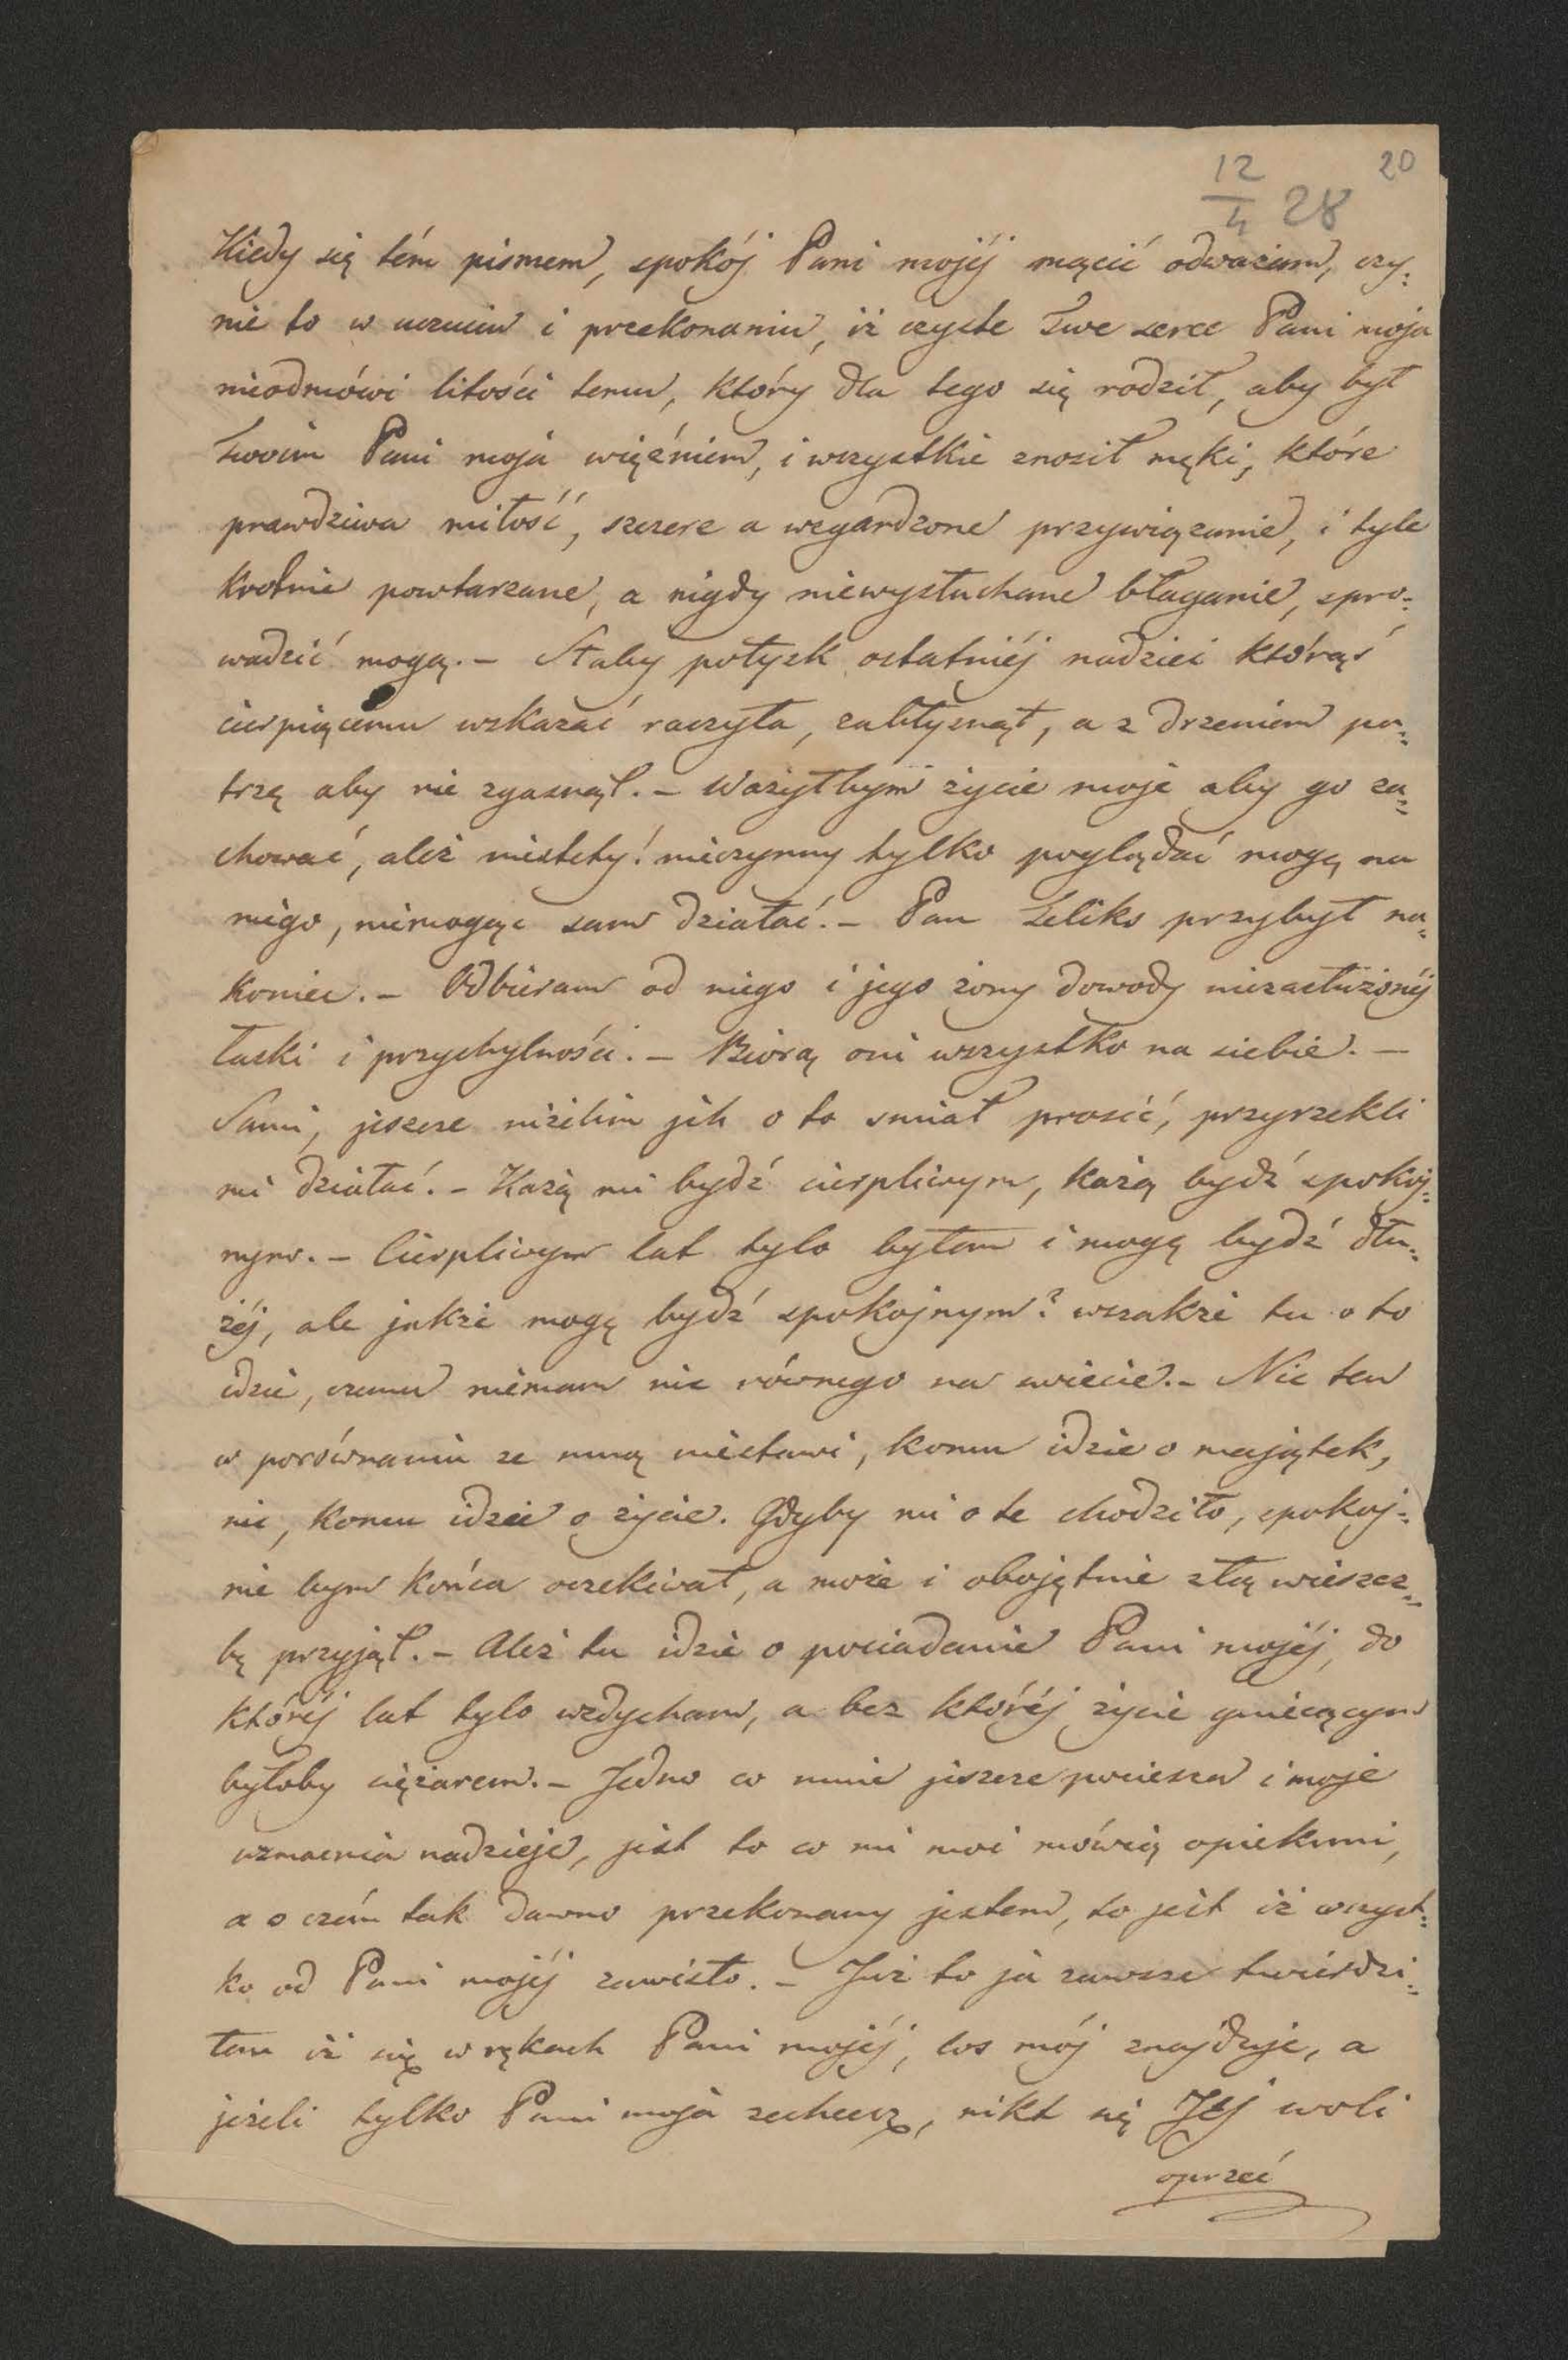 20
12/4 28
Kiedy się tém pismem, spokój Pani mojéj mącić odważam, czy=
nię to w uczuciu i przekonaniu, iż czyste Twe serce Pani moja
nieodmówi litości temu, który dla tego się rodził, aby był
Twoim Pani moja więźniem, i wszystkie znosił męki, które
prawdziwa miłość, szczere a wzgardzone przywiązanie, i tyle
krotnie powtarzane, a nigdy niewysłuchane błaganie, spro=
wadzić mogą. – Słaby połysk ostatniéj nadziei którąś
cierpiącemu wskazać raczyła, zabłysnął, a z drzeniem pa=
trzę aby nie zgasnął. – Ważyłbym życie moje aby go za=
chować, aleź niestety! nieczynny tylko poglądać mogę na
niego, niemogąc sam działać. – Pan Feliks przybył na=
koniec. – Odbieram od niego i jego żony dowody niezasłużonéj
łaski i przychylności. – Biorą oni wszystko na siebie. –
Sami, jeszcze niżelim ich o to smiał prosić, przyrzekli
mi działać. – Każą mi bydź cierpliwym, każą bydź spokoj=
nym. – Cierpliwym lat tylo byłem i mogę bydź dłu=
żéj, ale jakże mogę bydź spokojnym? wszakże tu o to
idzie, czemu niemam nic równego na swiecie. – Nic ten
w porównaniu ze mną niestawi, komu idzie o majątek,
nic, komu idzie o życie. Gdyby mi o te chodziło, spokoj=
nie bym końca oczekiwał, a może i obojętnie złą wieszcz=
bę przyjął. – Aleź tu idzie o posiadanie Pani mojéj, do
któréj lat tylo wzdycham, a bez któréj życie gniecącym
byłoby ciężarem. – Jedno co mnie jeszcze pociesza i moje
wzmacnia nadzieje, jest to co mi moi mówią opiekuni,
a o czém tak dawno przekonany jestem, to jest iż wszyst=
ko od Pani mojéj zawisło. – Już to ja zawsze twierdzi=
łem iż się w rękach Pani mojéj, los mój znajduje, a
jeżeli tylko Pani moja zechcesz, nikt się Jéj woli
oprzeć